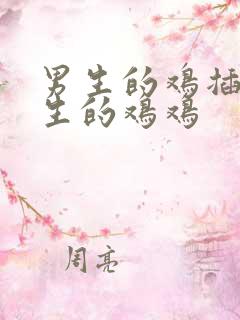 男生的鸡插
生的鸡鸡
周亮